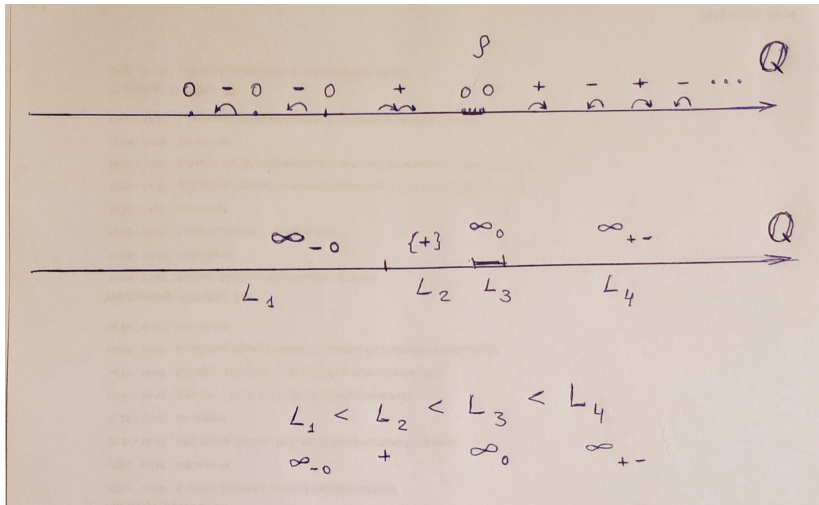 ρ
ℚ
0 - 0 - 0 + 0 0 + - + - ...
∞₋₀ {+} ∞₀ ∞₊₋ ℚ
L₁ L₂ L₃ L₄
L₁ < L₂ < L₃ < L₄
∞₋₀ + ∞₀ ∞₊₋